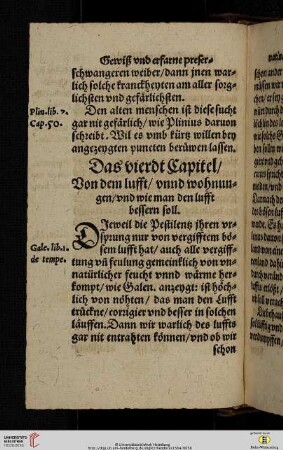 Gewiß vnd erfarne preser-
schwangeren weiber/dann jnen war-
lich solche kranckheyten am aller sorg-
lichsten vnd gefärlichsten.
Plin. lib. 7.
Cap. 50.
Den alten menschen ist diese sucht
gar nit gefärlich/wie Plinius daruon
schreibt. Wil es vmb kürtz willen bey
angezeygten puncten berüwen lassen.
Das vierdt Capitel/
Von dem lufft/vnnd wohnun-
gen/vnd wie man den lufft
bessern soll.
Gale. lib. 1.
de tempe.
DJeweil die Pestilentz jhren vr-
sprung nur von vergifftem bö-
sem lufft hat/auch alle vergiff-
tung vñ feulung gemeinklich von vn-
natürlicher feucht vnnd wärme her-
kompt/wie Galen. anzeygt: ist höch-
lich von nöhten/das man den Lufft
trückne/corrigier vnd besser in solchen
läuffen. Dann wir warlich des luffts
gar nit entrahten können/vnd ob wir
schon